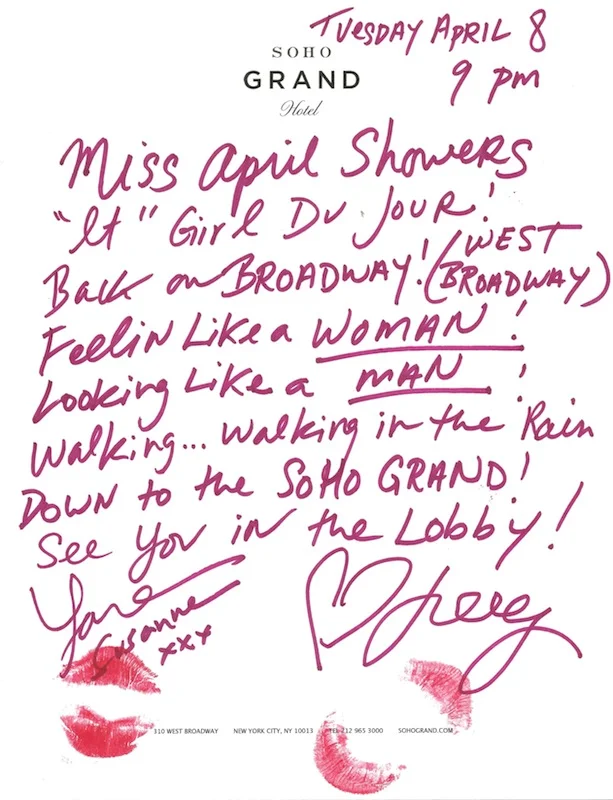 TUESDAY APRIL 8
9 pm
SOHO
GRAND
Hotel
Miss April Showers
"It" Girl Du Jour!
Back on BROADWAY! (WEST BROADWAY)
Feelin Like a WOMAN!
Looking Like a MAN!
Walking... walking in the Rain
DOWN to the SOHO GRAND!
See You in the Lobby!
Susanne
xxx
310 WEST BROADWAY NEW YORK CITY, NY 10013 TEL 212 965 3000 SOHOGRAND.COM